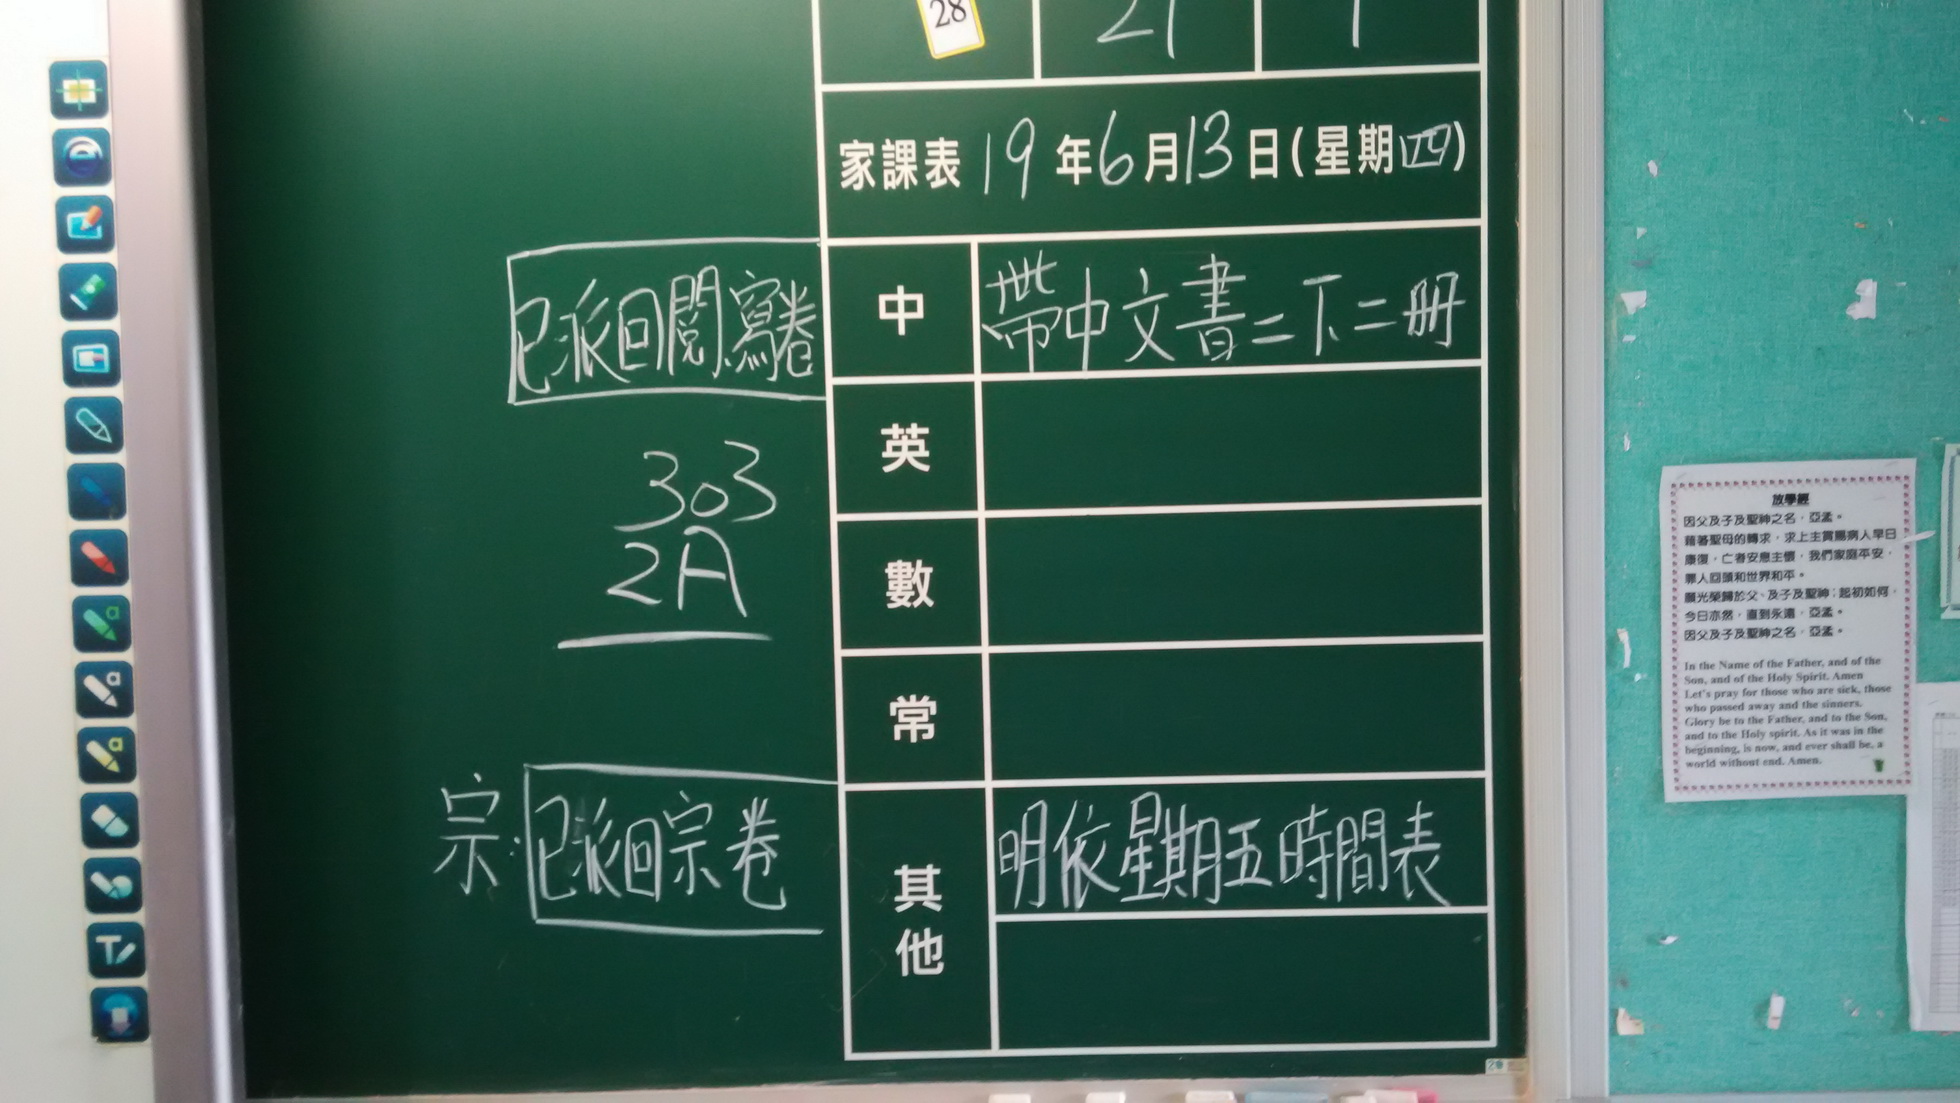 28
21
1
家課表 19年6月13日(星期四)
已派回閱寫卷
中
帶中文書二下二冊
英
303
2A
數
常
宗:已派回宗卷
其他
明依星期五時間表
放學經
因父及子及聖神之名，亞孟。
藉著聖母的轉求，求上主賞賜病人早日
康復，亡者安息主懷，我們家庭平安，
罪人回頭和世界和平。
願光榮歸於父、及子及聖神；起初如何，
今日亦然，直到永遠，亞孟。
因父及子及聖神之名，亞孟。
In the Name of the Father, and of the
Son, and of the Holy Spirit. Amen
Let's pray for those who are sick, those
who passed away and the sinners.
Glory be to the Father, and to the Son,
and to the Holy spirit. As it was in the
beginning, is now, and ever shall be, a
world without end. Amen.